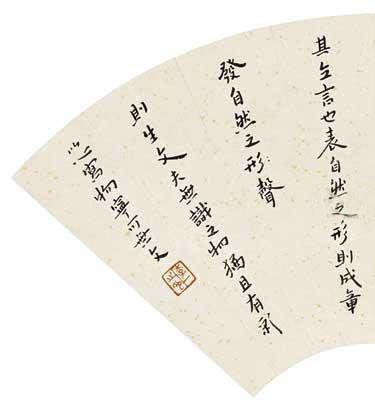 其立言也表自然之形則成章
發自然之形聲
則生文夫無識之物猶且有彩
心寫物寧可無文